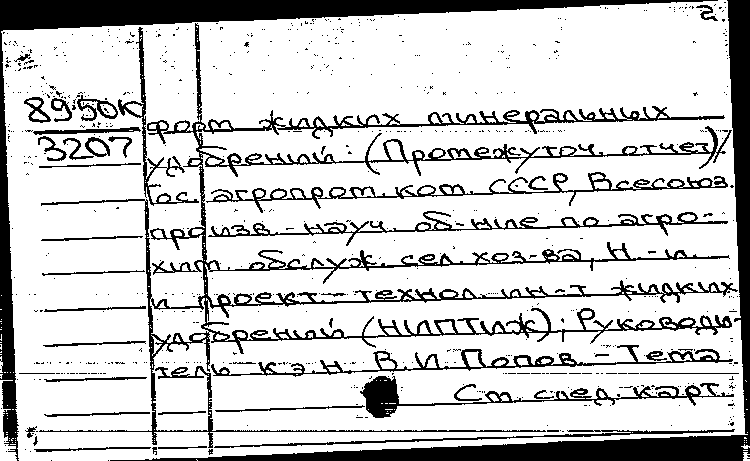 2.
8950к
3207
форм жидких минеральных
удобрений: (Промежуточ. отчет)/
Гос. агропром. ком. СССР, Всесоюз.
произв.-науч. об-ние по агро-
хим. обслуж. сел. хоз-ва, Н.-и.
и проект.-технол. ин-т жидких
удобрений (НИПТИЖ); Руководи-
тель к.э.н. В.И. Попов. - Тема
См. след. карт.